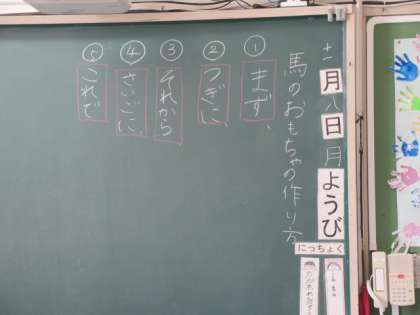 十一月八日月ようび
馬のおもちゃの作り方
①まず、
②つぎに、
③それから
④さいごに、
⑤これで
にっちょく